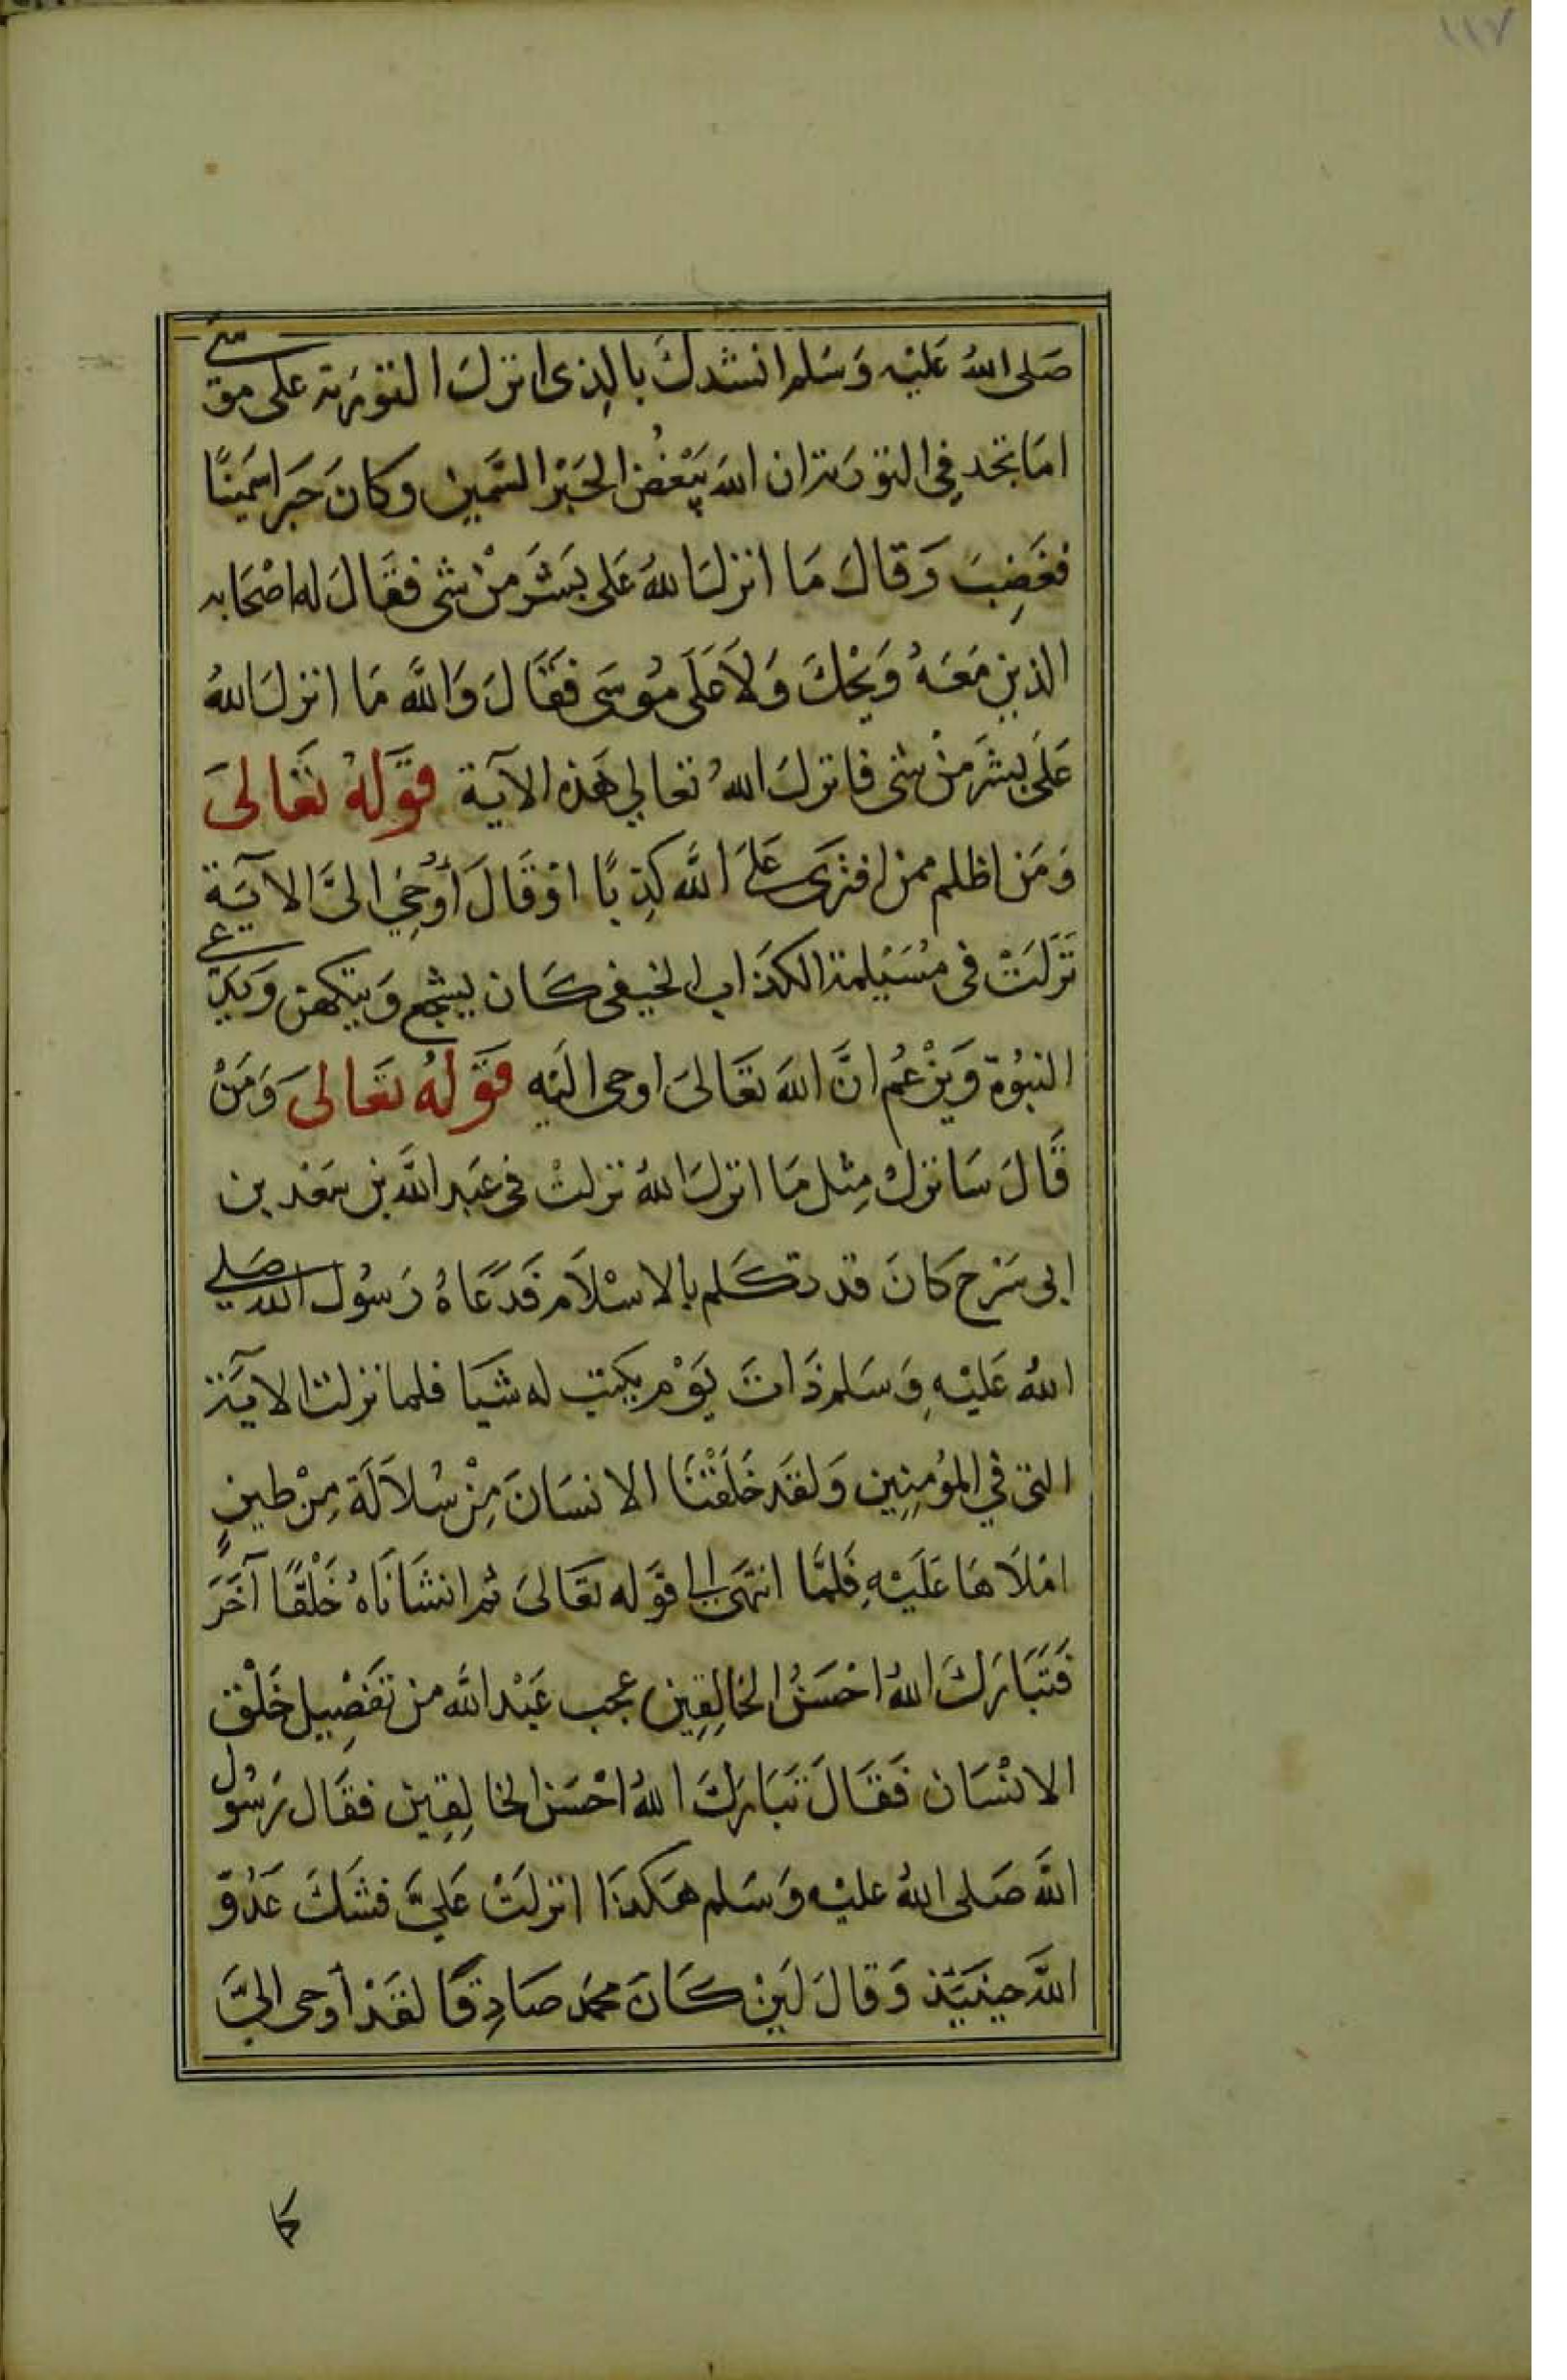 ١١٧
صَلى اللهُ عَليْه وَسَلم انشدكَ بالذِى انزلَ التورَية على موسَى
امَا تجد فِى التورية ان اللهَ يَبْغُضُ الحَبْر السَّمِين وكانَ حَبرا سَمينًا
فغَضِبَ وَقالَ مَا انزلَ اللهُ عَلى بَشَر مِنْ شئ فقَالَ له اصْحَابه
الذين مَعَهُ وَيْحَكَ وَلَا عَلَى مُوسَى فَقَالَ وَاللَّه مَا انزلَ اللهُ
عَلَى بشَر مِنْ شئ فانزلَ اللهُ تعَالي هَذه الآية قَوَلهُ تعَالىَ
وَمَن اظلم ممن افترَى عَلىَ اللَّه كذِبًا اوْقَالَ أُوحِيَ الىَّ الآيَة
نَزَلَتْ فى مُسَيْلمة الكذَاب الحنيفى كَان يسْجع وَيتكهن وَيَدَّعى
النبوُة وَيزْعُم انَّ اللهَ تعَالىَ اوحى اليَه قَوَلهُ تعَالىَ وَمَنْ
قَالَ سَانزلْ مِثل مَا انزلَ اللهُ نزلتْ فى عَبد اللَّه بن سَعْد بن
ابى سَرْح كانَ قد تكَلم بالاسْلَام فَدَعَاهُ رَسُول الله صَلى
اللهُ عَليْهِ وَسَلم ذَاتَ يَوْم يكتب له شَيَا فلما نزلت الآيَة
التى فِي المؤمِنِين وَلقَد خَلَقْنَا الانسَانَ مِنْ سُلَالَة مِنْ طينٍ
امْلَاهَا عَلَيْهِ فَلمَّا انتهَى الى قوَله تعَالىَ ثم انشَانَاهُ خَلْقًا آخَرَ
فَتَبَارَكَ اللهُ احْسَنُ الخَالِقِين عجب عَبْد اللَّه من تفَصِيل خَلْق
الانْسَان فَقَالَ تَبَارَكَ اللهُ احْسَن الخالِقِين فقَال رَسُول
اللَّه صَلى اللهُ عليْه وَسَلم هَكذَا انزلَتْ عَليَّ فشَكَ عَدُوّ
اللَّه حِينَيَذ وَقالَ لَين كَانَ محمَد صَادِقًا لقَدْ أوحى اليَّ
كا